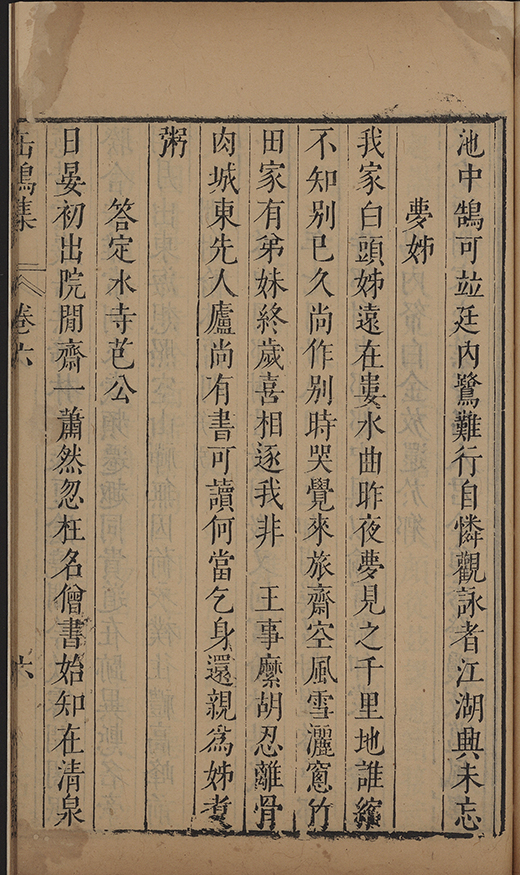 池中鵠可竝廷內鷺難行自憐觀詠者江湖興未忘
夢姊
我家白頭姊遠在婁水曲昨夜夢見之千里地誰縮
不知別已久尚作別時哭覺來旅齋空風雪灑窻竹
田家有弟妹終歲喜相逐我非 王事縻胡忍離骨
肉城東先人廬尚有書可讀何當乞身還親爲姊煑
粥
答定水寺芑公
日晏初出院閒齋一蕭然忽枉名僧書始知在清泉
缶鳴集 卷六 六